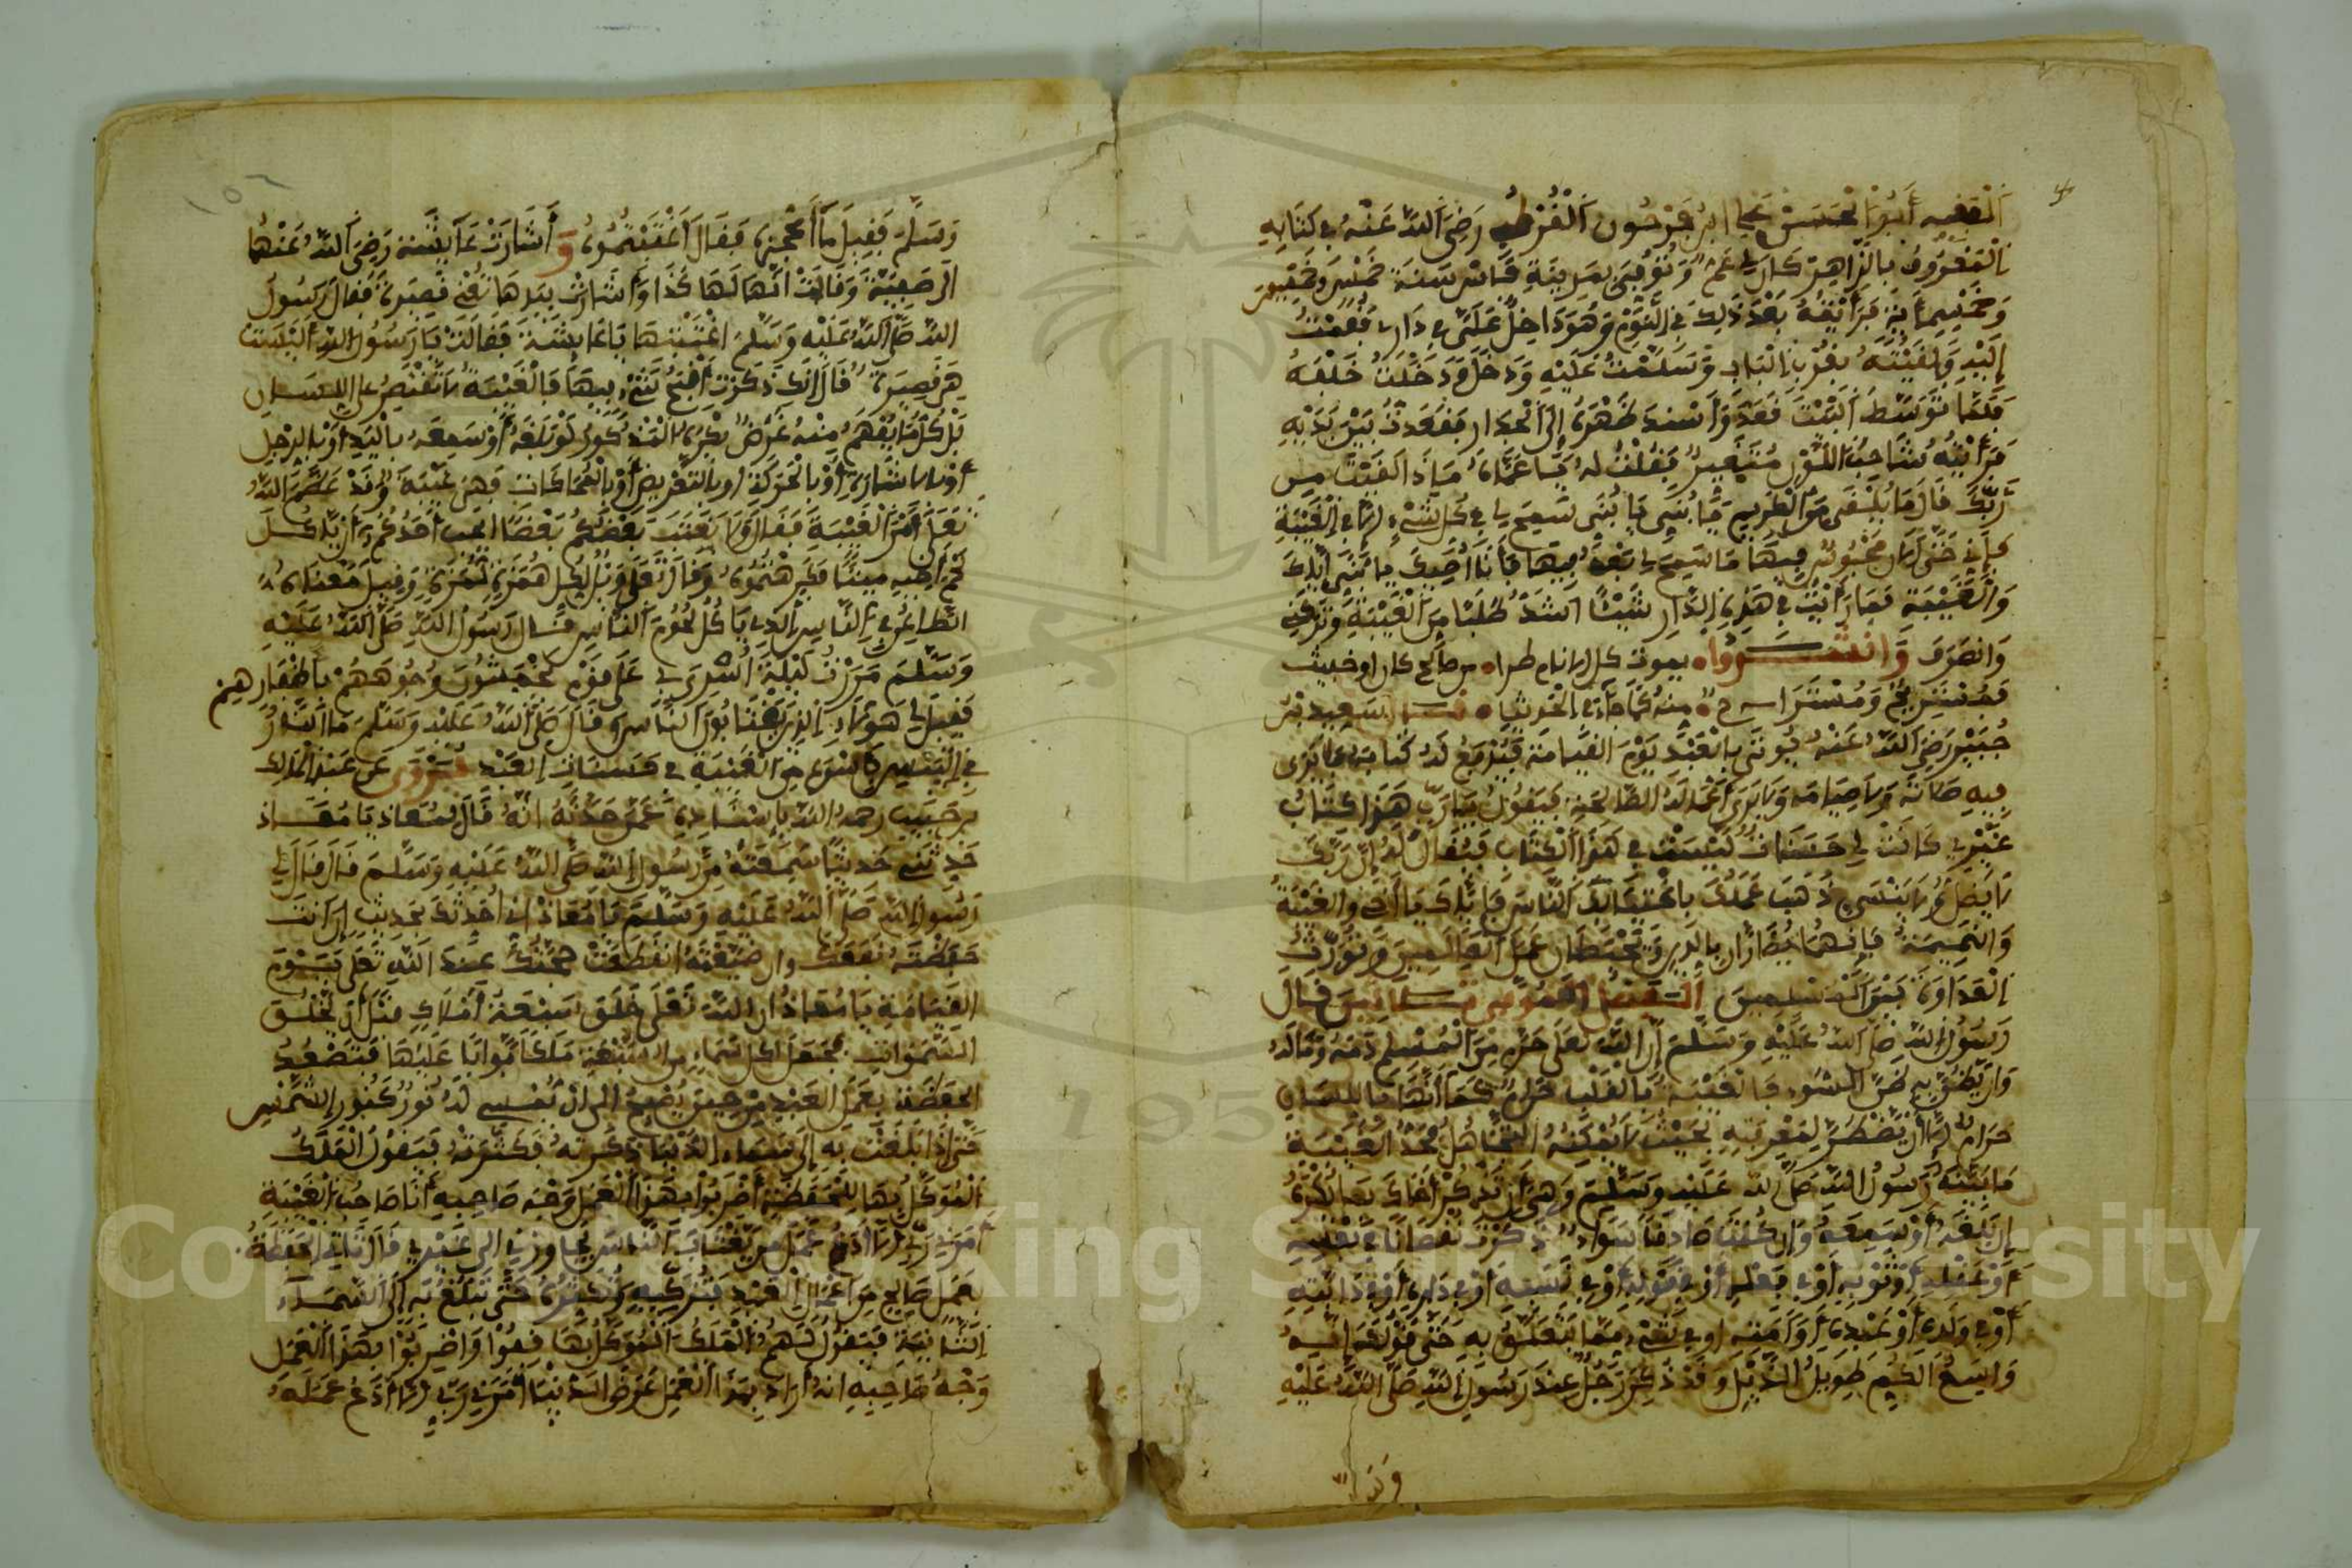 الفقيه أبو الحسن علي ابن فرحون القرطبي رضي الله عنه في كتابه
المعروف بالزاهر كان لي عم وتوفي بمدينة فاس سنة خمس وخمسين
وخمسمائة فرأيته بعد ذلك في النوم وهو داخل علي في داري فقمت
إليه ولقيته بقرب الباب وسلمت عليه ودخل ودخلت خلفه
فلما توسط البيت قعد وأسند ظهره إلى الجدار فقعدت بين يديه
فرأيته شاحب اللون متغير فقلت له يا عماه ماذا لقيت من
ربك قال ما يلقى من الكريم يا بني يا بني سمح لي في كل شيء إلا في الغيبة
فإني حتى الآن محبوس فيها ما سمح لي بعد فيها فأنا أوصيك يا بني إياك
والغيبة فما رأيت في هذه الدار شيئا أشد طلبا من الغيبة وتركني
وانصرف وانشدوا يموت كل الأنام طرا من صالح كان أو خبيث
فمستريح ومستراح منه كما جاء في الحديث قال سعيد بن
جبير رضي الله عنه يوتى بالعبد يوم القيامة فيدفع له كتابه فلا يرى
فيه صلاته ولا صيامه ولا يرى أعماله الصالحة فيقول يا رب هذا كتاب
غيري كانت لي حسنات ليست في هذا الكتاب فيقال له إن ربك
لا يضل ولا ينسى ذهب عملك باغتيابك الناس فإياك يا أخي والغيبة
والنميمة فإنهما يضران بالدين ويحبطان عمل العاملين ويورث
العداوة بين المسلمين قال
رسول الله صلى الله عليه وسلم إن الله تعلى حرم من المسلم دمه وماله
وأن يظن به ظن السوء فالغيبة بالقلب حرام كما أنها باللسان
حرام إلا أن يضطر لمعرفته بحيث لا يمكنه التجاهل وحد الغيبة
ما بينه رسول الله صلى الله عليه وسلم وهي أن تذكر أخاك بما يكره
إن بلغه أو سمعه وإن كنت صادقا سواء ذكرت نقصانا في نفسه
أو عقله أو ثوبه أو في فعله أو في قوله أو في نسبه أو في داره أو في دابته
أو في ولده أو عبده أو أمته أو في شيء مما يتعلق به حتى قولك إنه
واسع الكم طويل الذيل وقد ذكر رجل عند رسول الله صلى الله عليه
وسلم فقيل ما أعجزه فقال اغتبتموه وأشارت عائشة رضي الله عنها
إلى صفية وقالت إنها لها كذا وأشارت بيدها تعني قصيرة فقال رسول
الله صلى الله عليه وسلم اغتبتها يا عائشة فقالت يا رسول الله أليست
هي قصيرة قال إنك ذكرت أقبح شيء فيها فالغيبة لا تقتصر على اللسان
بل كل ما يفهم منه غرض يكره المذكور لو بلغه أو سمعه باليد أو بالرجل
أو بالإشارة أو بالحركة أو بالتعريض أو بالمحاكات فهي غيبة وقد عظم الله
تعلى أمر الغيبة فقال ولا يغتب بعضكم بعضا أيحب أحدكم أن ياكل
لحم أخيه ميتا فكرهتموه وقال تعلى ويل لكل همزة لمزة وقيل معناه
الطاعن في الناس الذي ياكل لحوم الناس قال رسول الله صلى الله عليه
وسلم مررت ليلة أسري بي على قوم يخمشون وجوههم بأظفارهم
فقيل لي هؤلاء الذين يغتابون الناس وقال صلى الله عليه وسلم ما النار
في اليبس بأسرع من الغيبة في حسنات العبد وروي عن عبد الملك
بن حبيب رحمه الله بإسناده عمن حدثه أنه قال لمعاذ يا معاذ
حدثني حديثا سمعته من رسول الله صلى الله عليه وسلم قال قال لي
رسول الله صلى الله عليه وسلم يا معاذ إني أحدثك بحديث إن أنت
حفظته نفعك وإن ضيعته انقطعت حجتك عند الله تعلى يوم
القيامة يا معاذ إن الله تعلى خلق سبعة أملاك قبل أن يخلق
السموات فجعل لكل سماء من السبعة ملكا بوابا عليها فتصعد
الحفظة بعمل العبد من حين يصبح إلى أن يمسي له نور كنور الشمس
حتى إذا بلغت به إلى سماء الدنيا زكته فكثرته فيقول الملك
الموكل بها للحفظة اضربوا بهذا العمل وجه صاحبه أنا صاحب الغيبة
أمرني ربي ألا أدع عمل من يغتاب الناس يجاوزني إلى غيري قال ثم تاتي الحفظة
بعمل صالح من أعمال العبد فتزكيه وتكثره حتى تبلغ به إلى السماء
الثانية فيقول لهم الملك الموكل بها قفوا واضربوا بهذا العمل
وجه صاحبه إنه أراد بهذا العمل عرض الدنيا أمرني ربي ألا أدع عمله